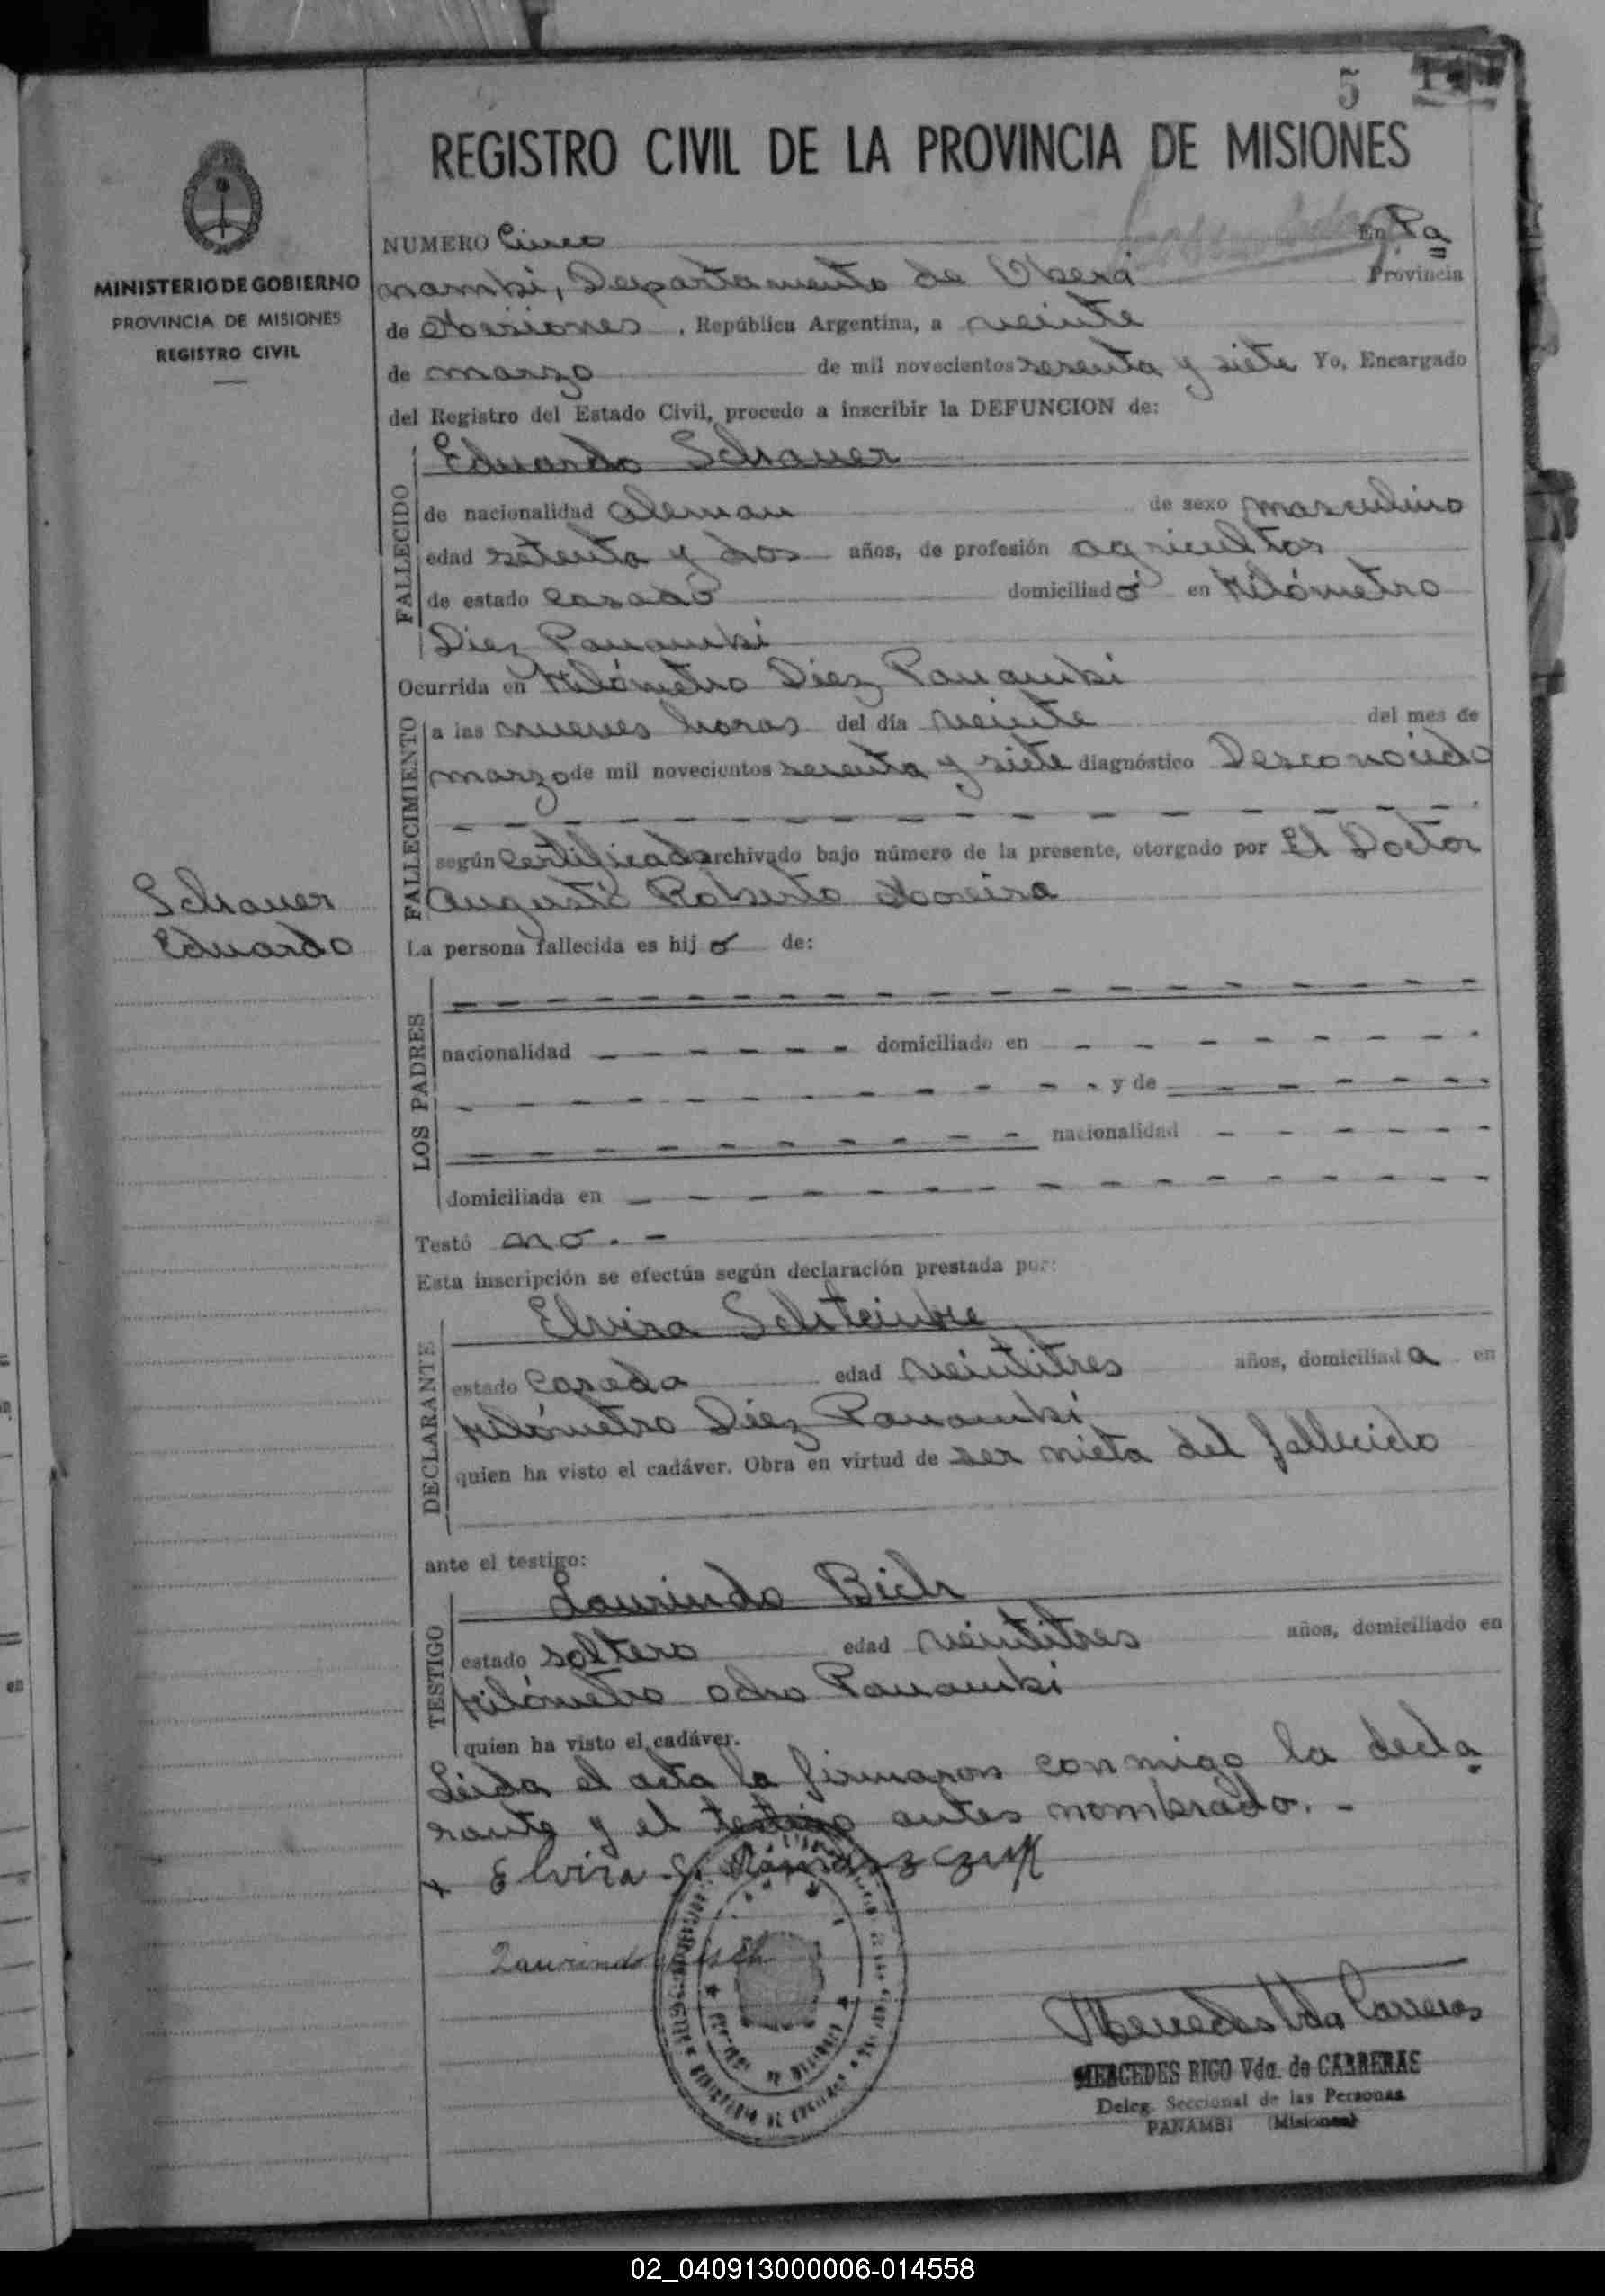 5
REGISTRO CIVIL DE LA PROVINCIA DE MISIONES
MINISTERIO DE GOBIERNO
PROVINCIA DE MISIONES
REGISTRO CIVIL
NUMERO Cinco En Pa
nambi, Departamento de Oberá Provincia
de Misiones, República Argentina, a veinte
de marzo de mil novecientos sesenta y siete Yo, Encargado
del Registro del Estado Civil, procedo a inscribir la DEFUNCION de:
FALLECIDO
Eduardo Schauer
de nacionalidad Aleman de sexo masculino
edad setenta y dos años, de profesión agricultor
de estado casado domiciliado en Kilómetro
Diez Panambi
Ocurrida en Kilómetro Diez Panambi
FALLECIMIENTO
a las nueves horas del día veinte del mes de
marzo de mil novecientos sesenta y siete diagnóstico Desconocido
según Certificado archivado bajo número de la presente, otorgado por El Doctor
Augusto Roberto Moreira
Schauer
Eduardo
La persona fallecida es hijo de:
LOS PADRES
nacionalidad domiciliado en
y de
nacionalidad
domiciliada en
Testó no.-
Esta inscripción se efectúa según declaración prestada por:
DECLARANTE
Elvira
estado casada edad veintitres años, domiciliada en
Kilómetro Diez Panambi
quien ha visto el cadáver. Obra en virtud de ser nieta del fallecido
ante el testigo:
TESTIGO
Laurindo Bich
estado soltero edad veintitres años, domiciliado en
Kilómetro ocho Panambi
quien ha visto el cadáver.
Leida el acta la firmaron conmigo la decla
rante y el testigo antes nombrado.-
Elvira S.
Laurindo
Mercedes Vda Carreras
MERCEDES RIGO Vda. de CARRERAS
Deleg. Seccional de las Personas
PANAMBI (Misiones)
02_040913000006-014558